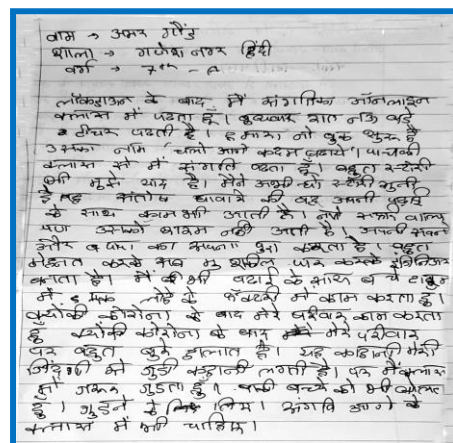 नाम → अमर गौंड
शाला → गणेश नगर हिंदी
वर्ग → 7th - A
लॉकडाऊन के बाद मैं संगतिक्स ऑनलाइन
क्लास में पढता हूँ।
टीचर पढती है। हमारा जो बुक शुरू है
उसका नाम चलो आगे कदम बढाये। पाचवी
क्लास से मैं संगति पढता हूँ। बहुत स्टोरी
भी मुझे याद है। मैने अभी जो स्टोरी सुनी
है वह संतोष की वह अपनी पढाई
के साथ काम भी आती है।
उसको शरम नही आती है। अपनी सपने
और का सपना पुरा करता है। बहुत
मेहनत करके सब मुश्किल पार करके इंजिनिअर
बनता है। मैं भी पढाई के साथ
में लोहे के फॅक्टरी में काम करता हूँ।
क्योंकी कोरोना के बाद मेरे परिवार काम करता
हूँ क्योंकी कोरोना के बाद मेरे परीवार
पर बहुत बुरे हालात है। यह कहानी मेरी
जिंदगी से जुडी कहानी लगती है। पर मैं क्लास
से जरूर जुडता हूँ। बाकी बच्चे को भी
हूँ। जुडने के लिए। संगति आगे के
क्लास में भी चाहिए।